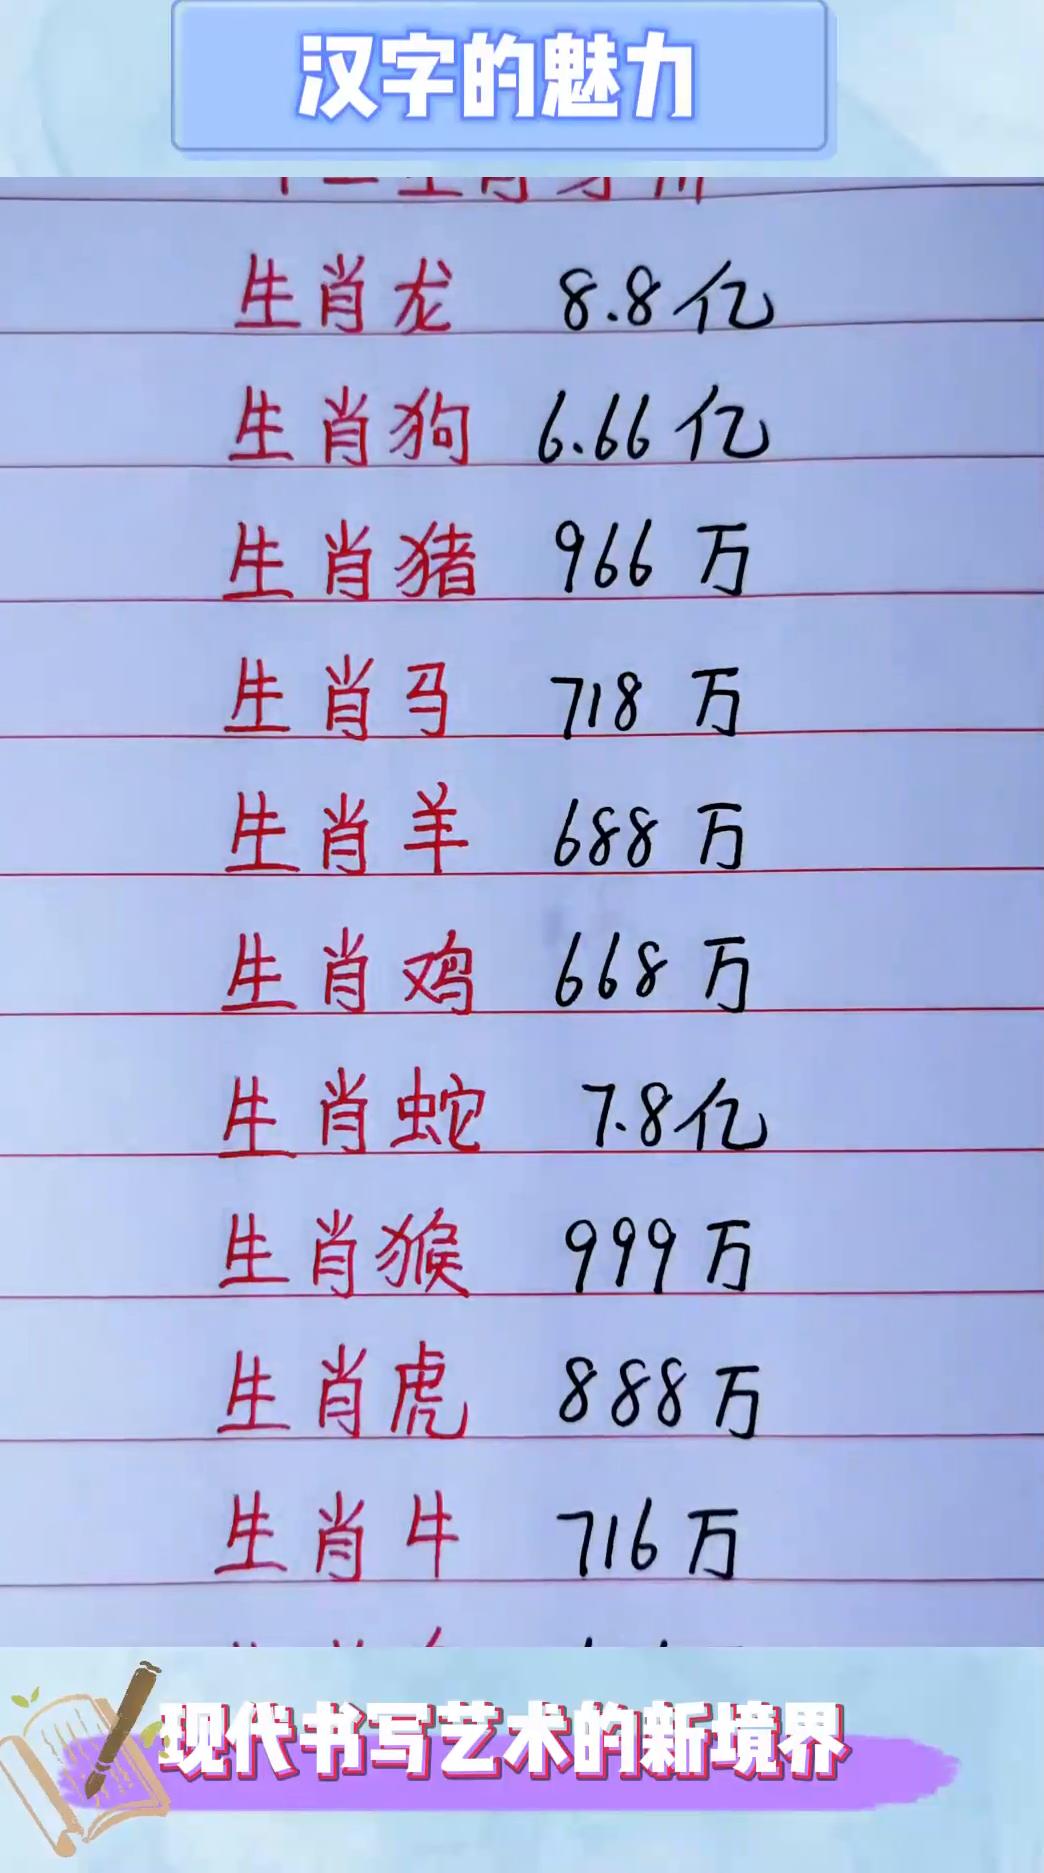 汉字的魅力
生肖龙 8.8亿
生肖狗 6.66亿
生肖猪 966万
生肖马 718万
生肖羊 688万
生肖鸡 668万
生肖蛇 7.8亿
生肖猴 999万
生肖虎 888万
生肖牛 716万
现代书写艺术的新境界